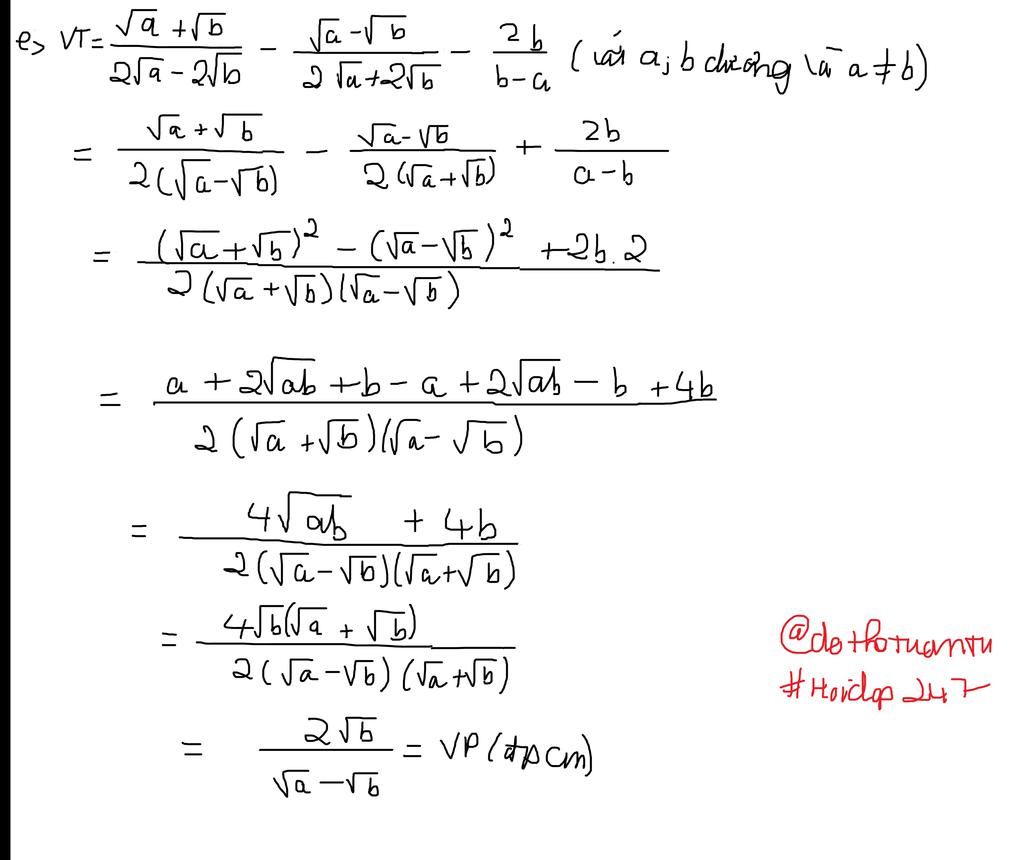 e> VT = (√a + √b)/(2√a - 2√b) - (√a - √b)/(2√a + 2√b) - 2b/(b - a) (với a, b dương và a ≠ b)
= (√a + √b)/(2(√a - √b)) - (√a - √b)/(2(√a + √b)) + 2b/(a - b)
= ((√a + √b)² - (√a - √b)² + 2b.2)/(2(√a + √b)(√a - √b))
= (a + 2√ab + b - a + 2√ab - b + 4b)/(2(√a + √b)(√a - √b))
= (4√ab + 4b)/(2(√a - √b)(√a + √b))
= (4√b(√a + √b))/(2(√a - √b)(√a + √b))
= 2√b/(√a - √b) = VP (đpcm)
@dothotuantu
#Hoidap247